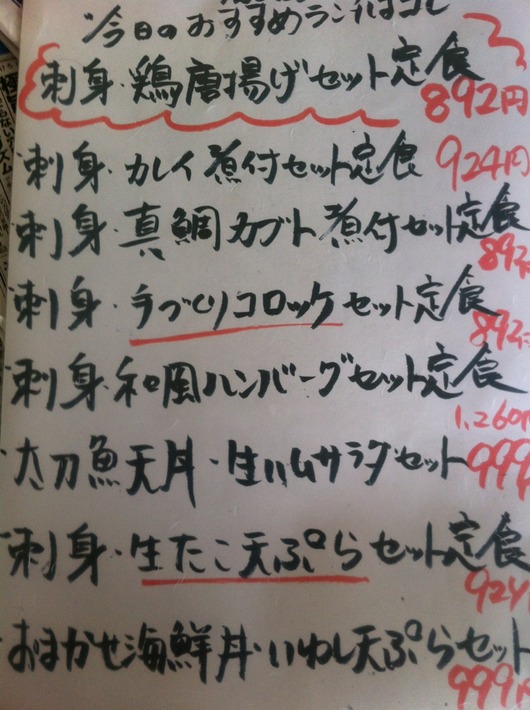 今日のおすすめランチはコレ
刺身・鶏唐揚げセット定食
892円
刺身・カレイ煮付セット定食 924円
刺身・真鯛カブト煮付セット定食
892
刺身・手づくりコロッケセット定食
892
刺身・和風ハンバーグセット定食
1,260
太刀魚天丼・生ハムサラダセット 999
刺身・生たこ天ぷらセット定食
924
おまかせ海鮮丼・いわし天ぷらセット
999円